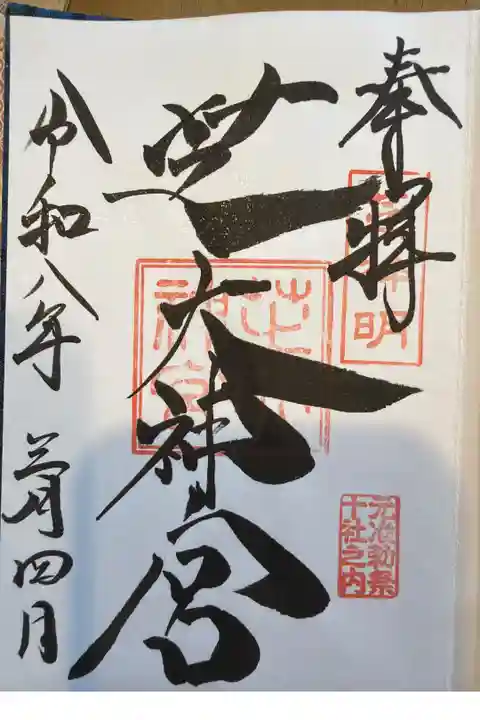 奉拝
芝神明
元准勅祭
十社之内
芝大神宮
芝大
神宮
令和八年 月四日